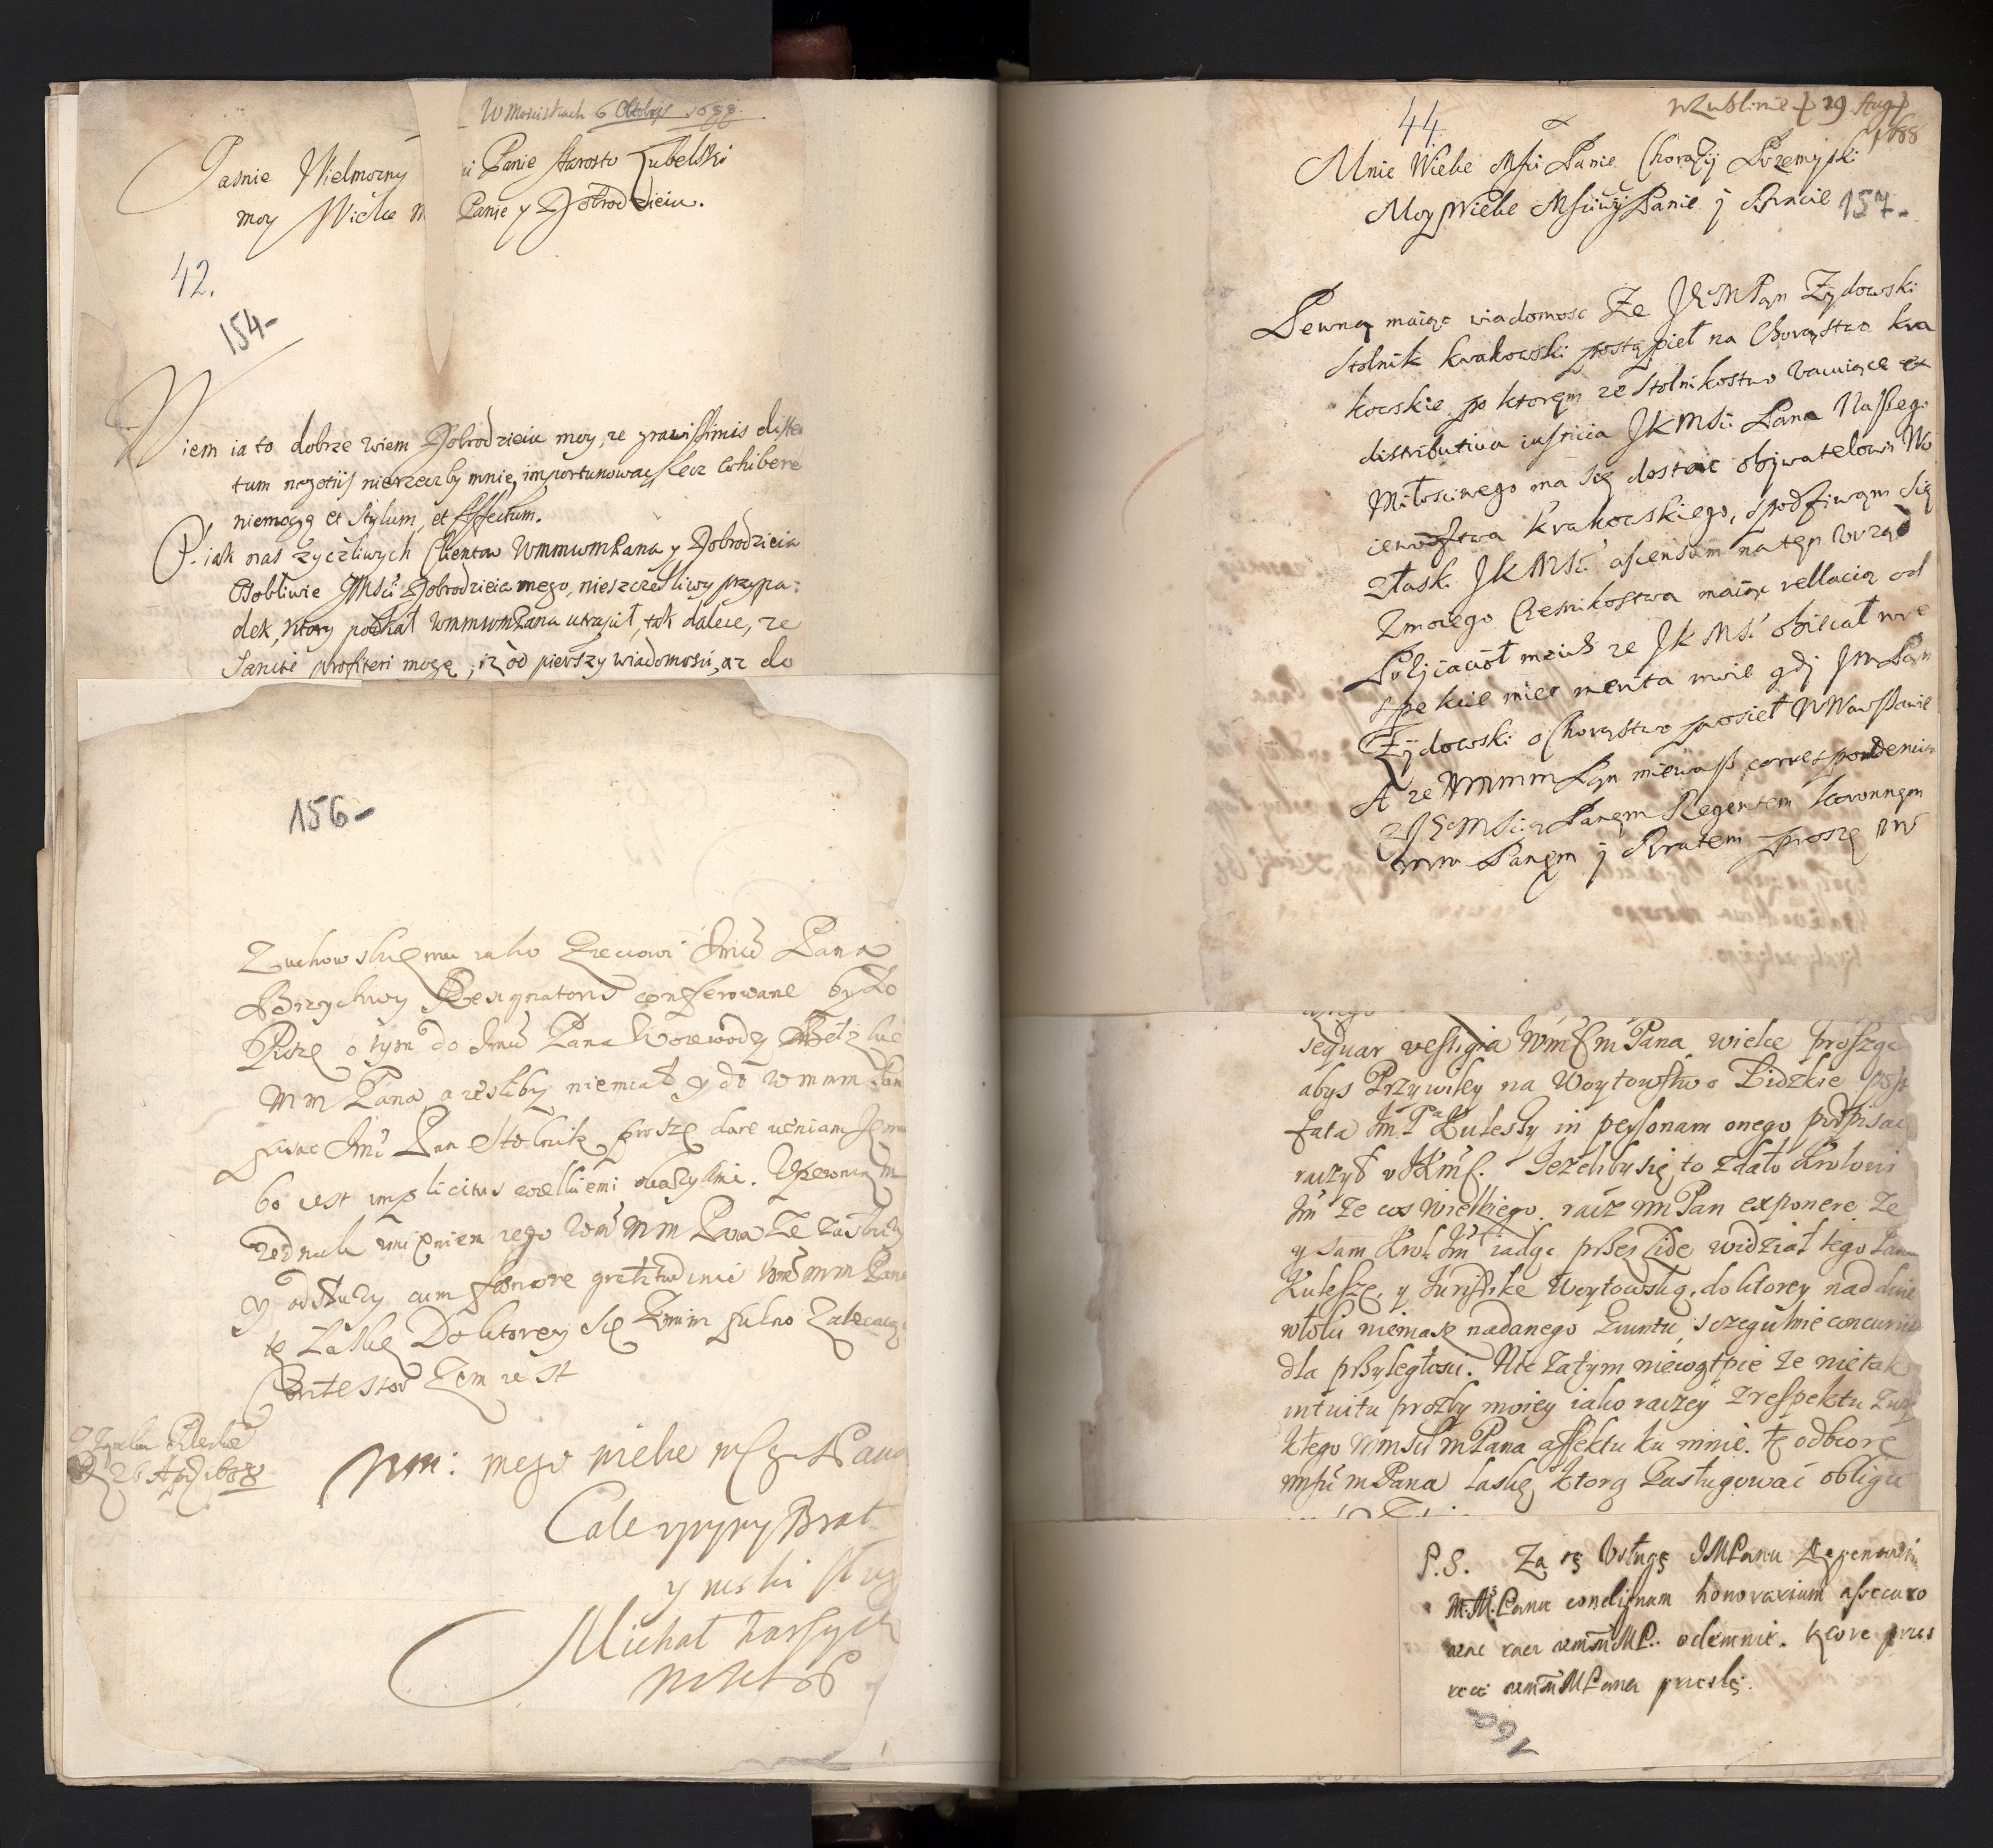 W Mościskach 6 Oktobris 1688.
Jasnie Wielmozny Panie Starosto Lubelski
moy Wielce M Panie y Dobrodzieiu.
42.
154-
Wiem ia to dobrze wiem Dobrodzieiu moy, ze gravissimis disten
tum negotijs nierzeczby mnie, importunować, lecz Cohibere
niemogę et Stylum, et Affectum.
P. iak nas zyczliwych Clientow WmmwmPana y Dobrodzieia
Osobliwie JMSci Dobrodzieia mego, nieszczesliwy przypa:
dek, ktory potkał WmmwmPana utrapił, tak dalece, ze
Sancte profiteri mogę, iz od pierszy wiadomosci, az do
156-
Zuchowskiemu iako Zięciowi Jmci Pana
Przychwy Resignatoris conferowane było
Piszę o tym do Jmci Pana Woiewody Bełzkie
mm Pana a iesliby niemiał y do wmm Pan
pisac Jmc Pan Stolnik proszę dare veniam Jemu
bo iest implicitus wielkiemi okazyami. Upewniam
Iednak imieniem iego Wm mm Pana ze zasłuzy
y odsłuzy cum faenore gratitudinis Wm mm Pana
tę Łaskę Do ktorey się y mnie pilno zalecaiąc
Contestor Zem iest
26 Apr 1688
Wm: mego wielce msg Pana
Cale uprzy Brat
y niski sług
Michał
44.
w Lublinie d 29 Aug
1688
Mnie Wielce Msci Panie Chorąży Przemyski
Moy Wielce Msciwy Panie j Bracie
157-
Pewną maiąc wiadomosc ze JEMPan Zydowski
Stolnik krakowski postąpieł na Chorąstwo kra
kowskie po ktorym ze Stolnikostwo vacuiące ex
distributiva iusticia JKMSci Pana Naszego
Miłosciwego ma się dostac objwatelowi Wo
iewodztwa krakowskiego, spodziwam się
z łaski JKMSci ascensum na ten Urząd
Zmoiego Czesnikostwa maiąc rellacią od
Przijacioł moich ze JKMSc obiecał w re
spekcie miec merita moie gdj JmPan
Zydowski o Chorąstwo prosieł W Warszawie
A ze Wmmm Pan miewasz correspondencia
Z JEMScią Panem Regentem koronnym
mm Panem j Bratem proszę Wm
sequar vestigia WmSmPana wielce proszę
abys Przywiley na Woytowstwo Lidzkie post
fata Jm Pa Kuleszy in personam onego podpisac
raczył u JKmS. Jezeliby się to zdało Krolowi
Jm ze cos wielkiego. racz mPan exponere ze
y sam Krol Jm iadąc przez Lide widział tego Pana
Kuleszę, y Jurisdikę Woytowską, do ktorey nad dwie
włoki niemasz nadanego Gruntu, sczegulnie concurrit
dla przyległosci. Nic zatym niewątpie ze nietak
intuitu prozby moiey iako raczey z respektu zwy
kłego WmSci mPana affektu ku mnie. tę odbiorę
wmsci mPana łaskę, ktorą zasługować obligu
P.S. Za tę Usługę JMPanu Regentowi
M.M.Panu condignum honorarium assecuro
wac racz wmsmMP. odemnie. ktore przes
ręce wmsmMPana przeslę.
160